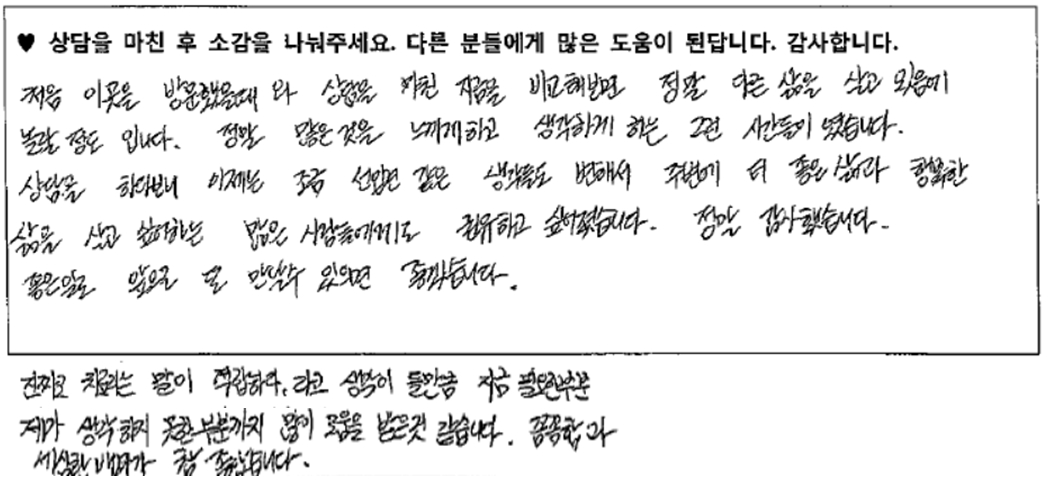 ♥ 상담을 마친 후 소감을 나눠주세요. 다른 분들에게 많은 도움이 된답니다. 감사합니다.
처음 이곳을 방문했을때 와 상담을 마친 지금을 비교해보면 정말 다른 삶을 살고 있음에
놀랄 정도 입니다. 정말 많은것을 느끼게하고 생각하게 하는 그런 시간들이 였습니다.
상담을 하다보니 이제는 조금 선입견 같은 생각들도 변해서 주변에 더 좋은 삶과 행복한
삶을 살고 싶어하는 많은 사람들에게도 권유하고 싶어졌습니다. 정말 감사했습니다.
좋은일로 앞으로 또 만날수 있으면 좋겠습니다.
진짜로 치료라는 말이 적합하다. 라고 생각이 들만큼 지금 필요한부분
제가 생각하지 못한 부분까지 많이 도움을 받은것 같습니다. 꼼꼼함과
세심한 배려가 참 좋았습니다.